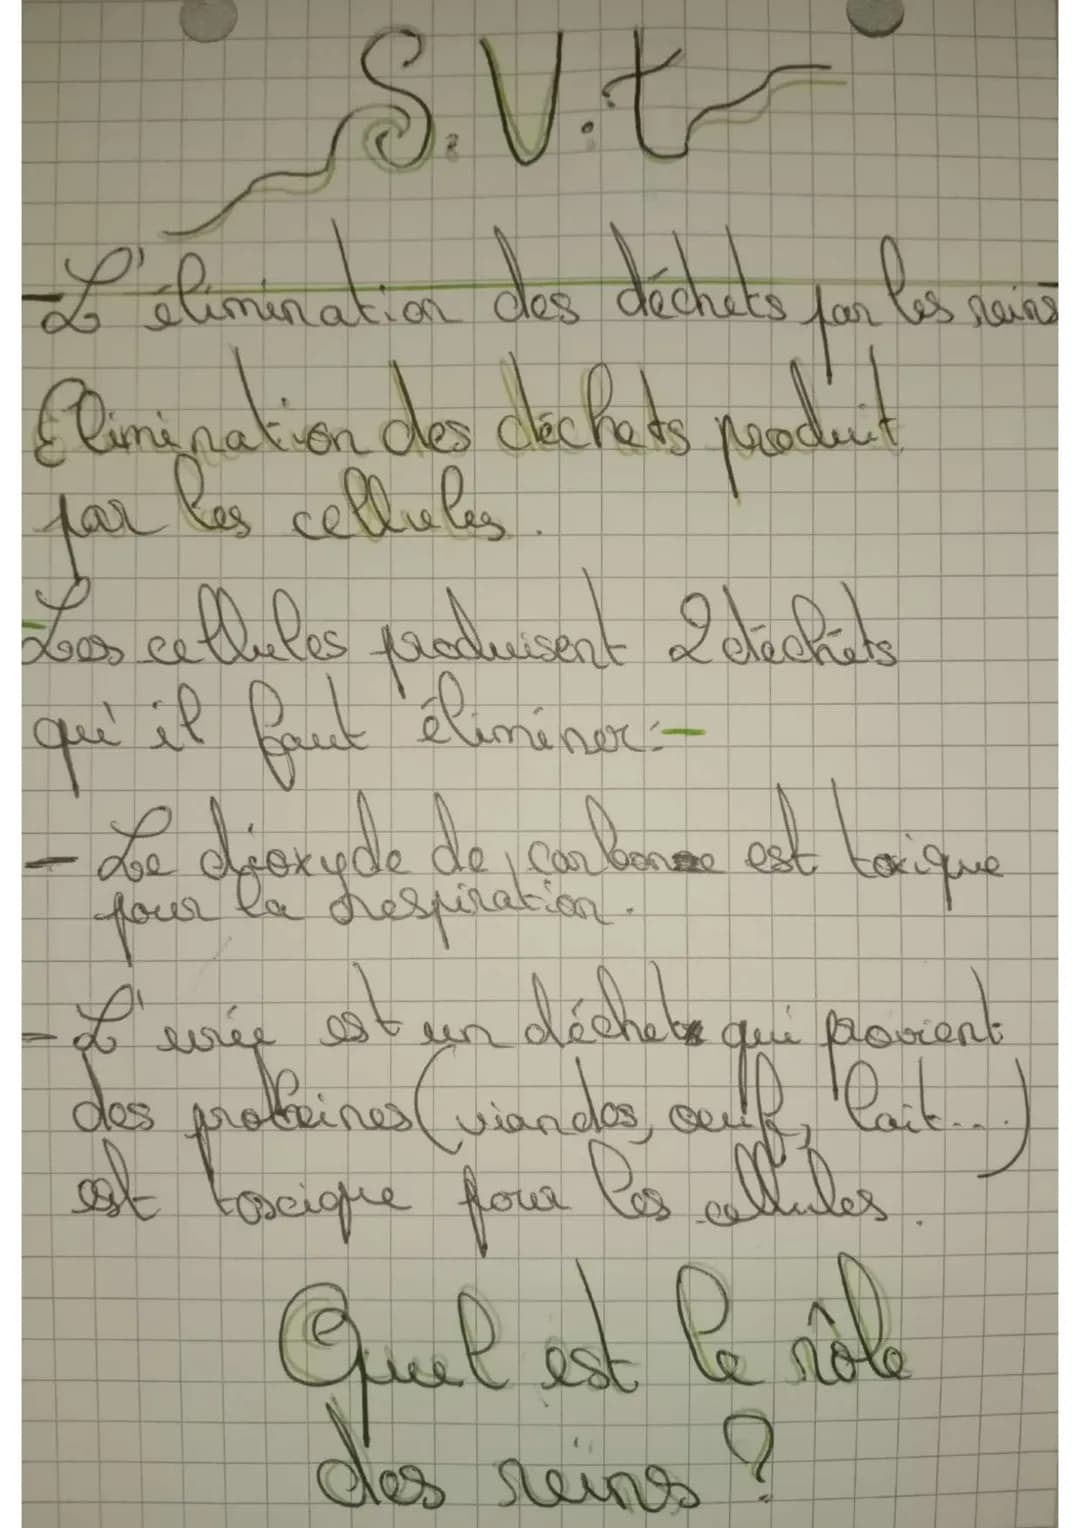 S.V.t
- L'élimination des déchets par les reins
Elimination des déchets produit
par les cellules.
Les cellules produisent 2 déchets
qu'il faut éliminer:-
- Le dioxyde de carbone est toxique
pour la respiration.
- L'urée est un déchet qui provient
des proteines (viandes, oeuf, lait...)
est toxique pour les cellules.
Quel est le rôle
des reins ?